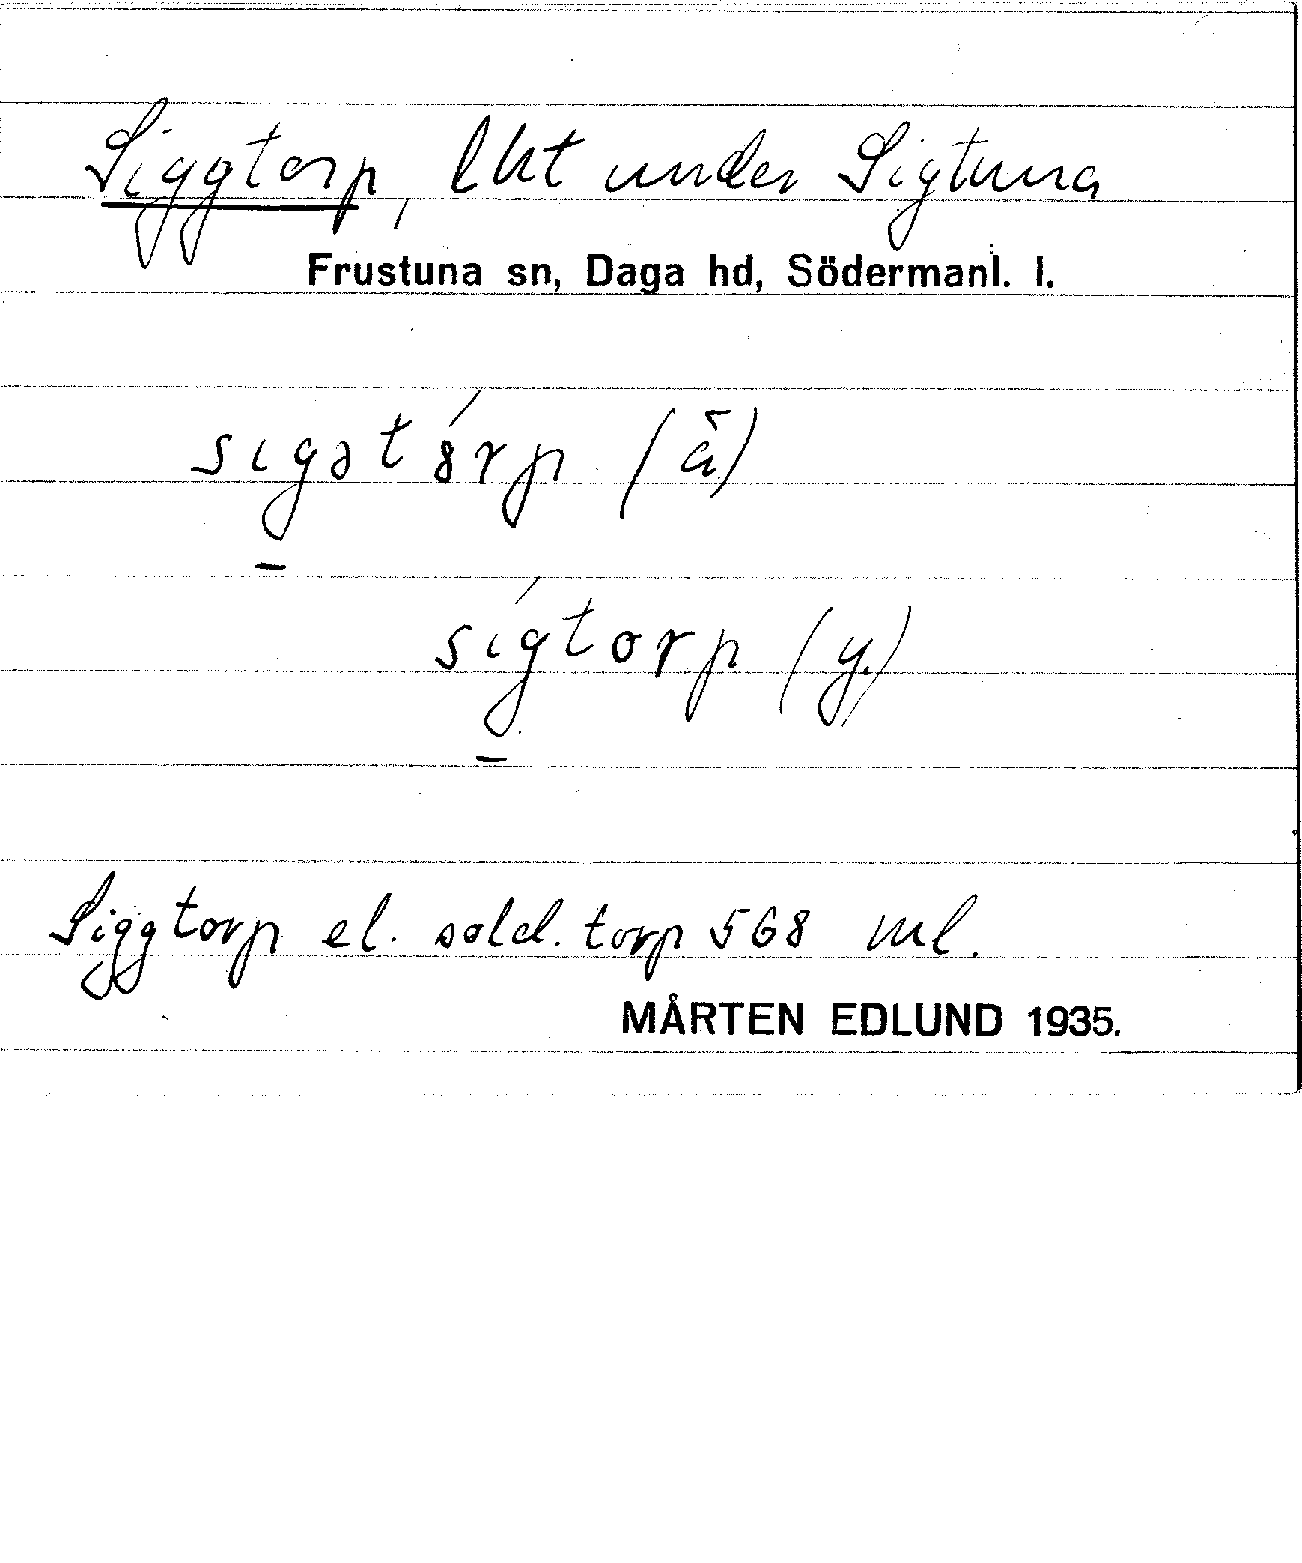 Siggtorp, lht under Sigtuna
Frustuna sn, Daga hd, Södermanl. l.
sigətórp (ä)
sígtorp (y.)
Siggtorp el. sold. torp 568 ml.
MÅRTEN EDLUND 1935.